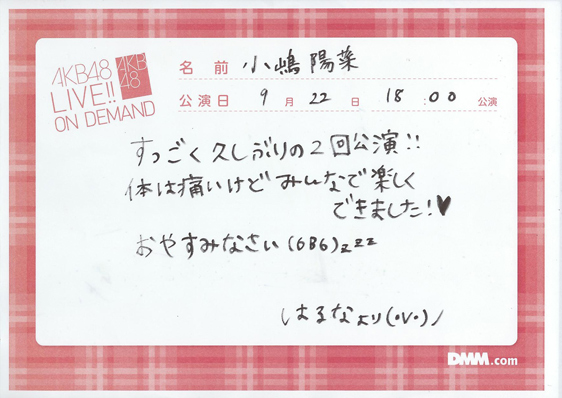 AKB48
LIVE!!
ON DEMAND
AKB
48
名前 小嶋陽菜
公演日 9月22日 18:00公演
すっごく久しぶりの2回公演!!
体は痛いけどみんなで楽しく
できました!♥
おやすみなさい(6B6)zzz
はるなより(・V・)ノ
DMM.com